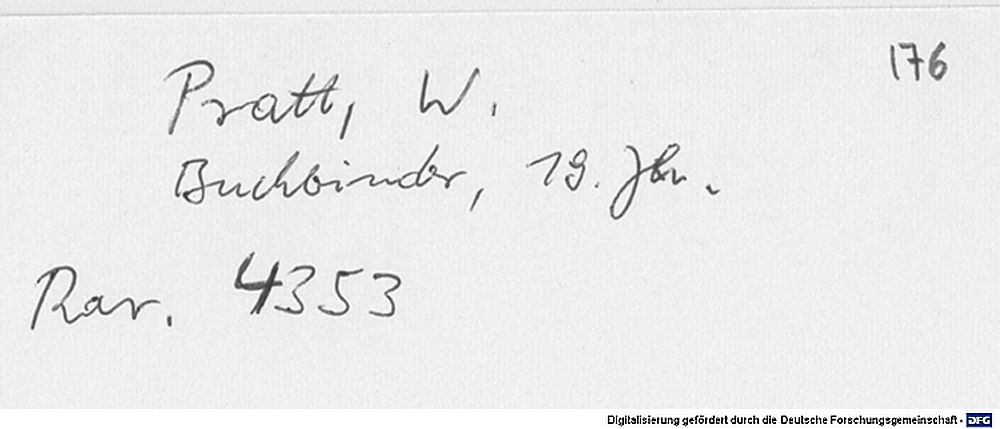 176
Pratt, W.
Buchbinder, 19. Jh.
Rar. 4353
Digitalisierung gefördert durch die Deutsche Forschungsgemeinschaft - DFG